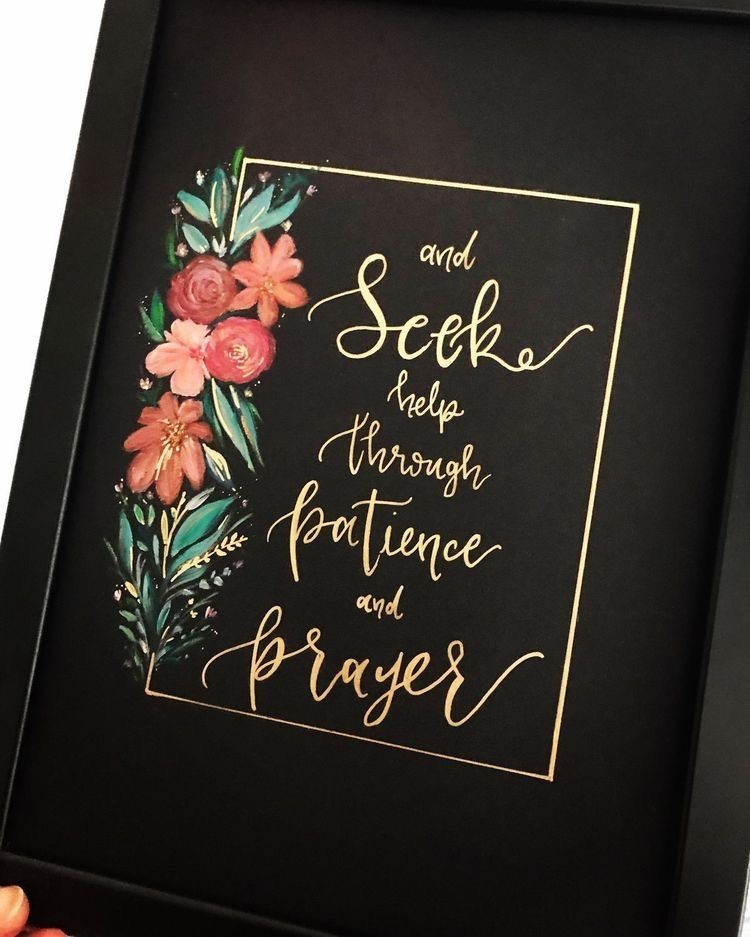 and
Seek
help
through
patience
and
prayer